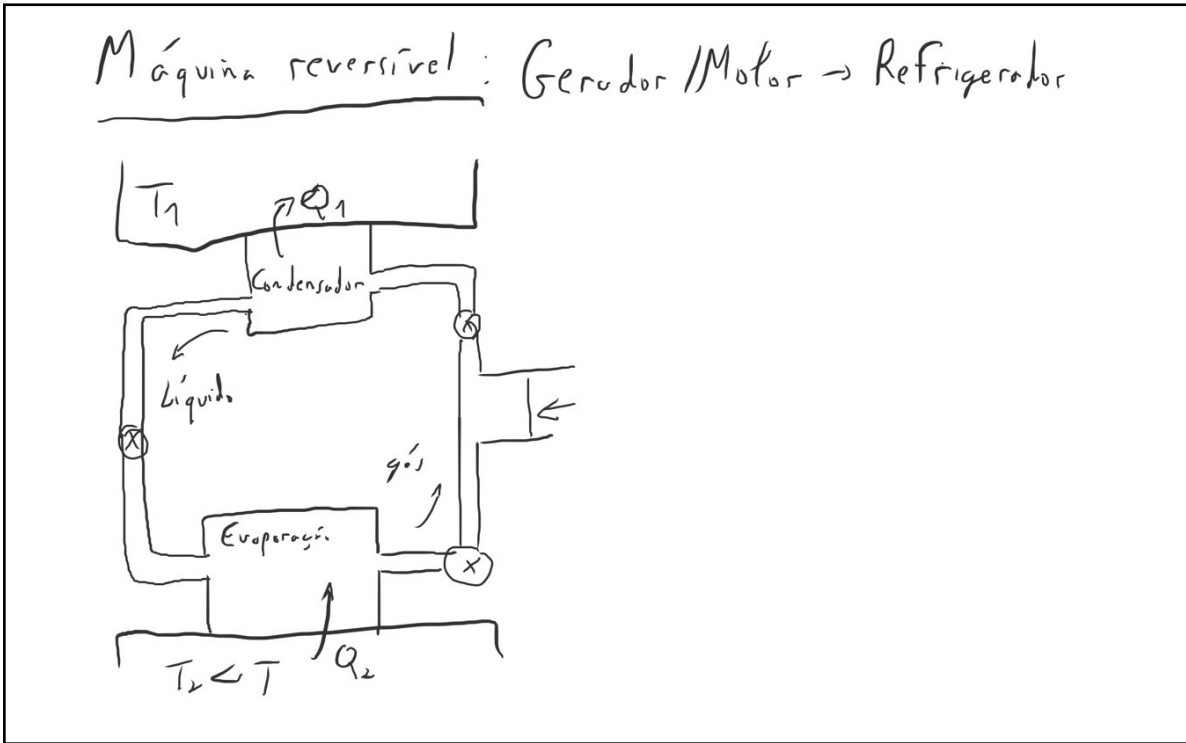 Máquina reversível: Gerador/Motor → Refrigerador
T₁
Q₁
Condensador
Líquido
gás
Evaporação
T₂ < T
Q₂